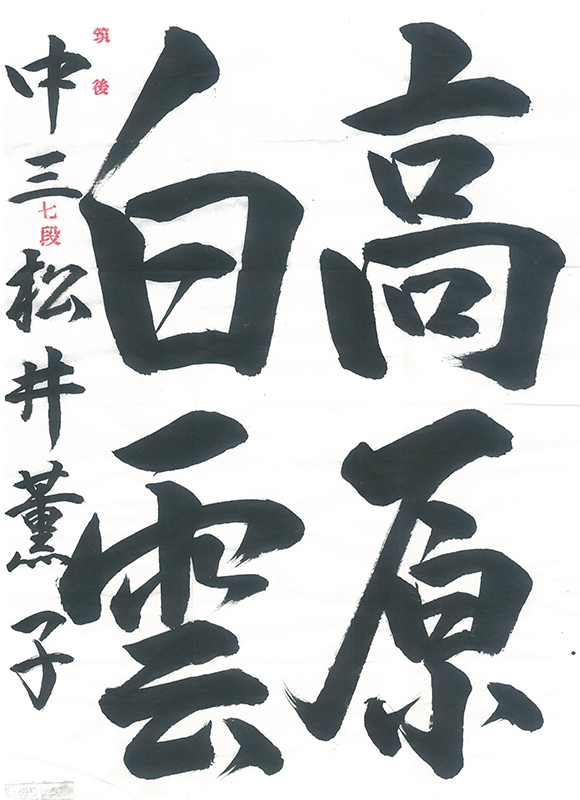 高原
白雲
筑後
中三 七段 松井薫子